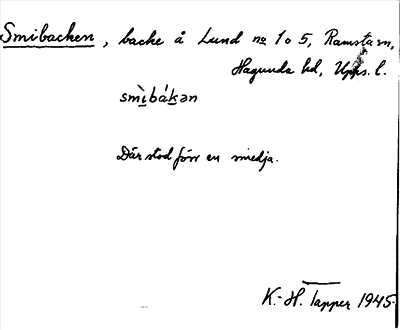 Smibacken, backe å Lund no 1 o 5, Ramsta sn,
Hagunda hd, Upps. l.
smì̱bák̲ən
Där stod förr en smedja.
K.-H. Tapper 1945.